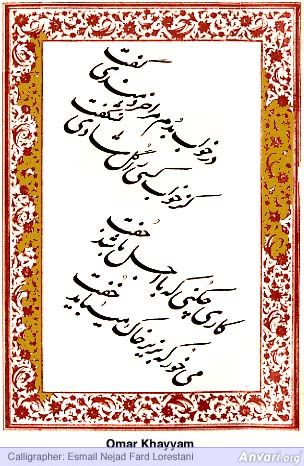 در خواب بُدم مرا خردمندی گفت
کز خواب کسی را گل شادی نشکفت
کاری چکنی که با اجل باشد جُفت
می خور که بزیر خاک میباید خفت
Omar Khayyam
Calligrapher: Esmail Nejad Fard Lorestani
Anvari.org